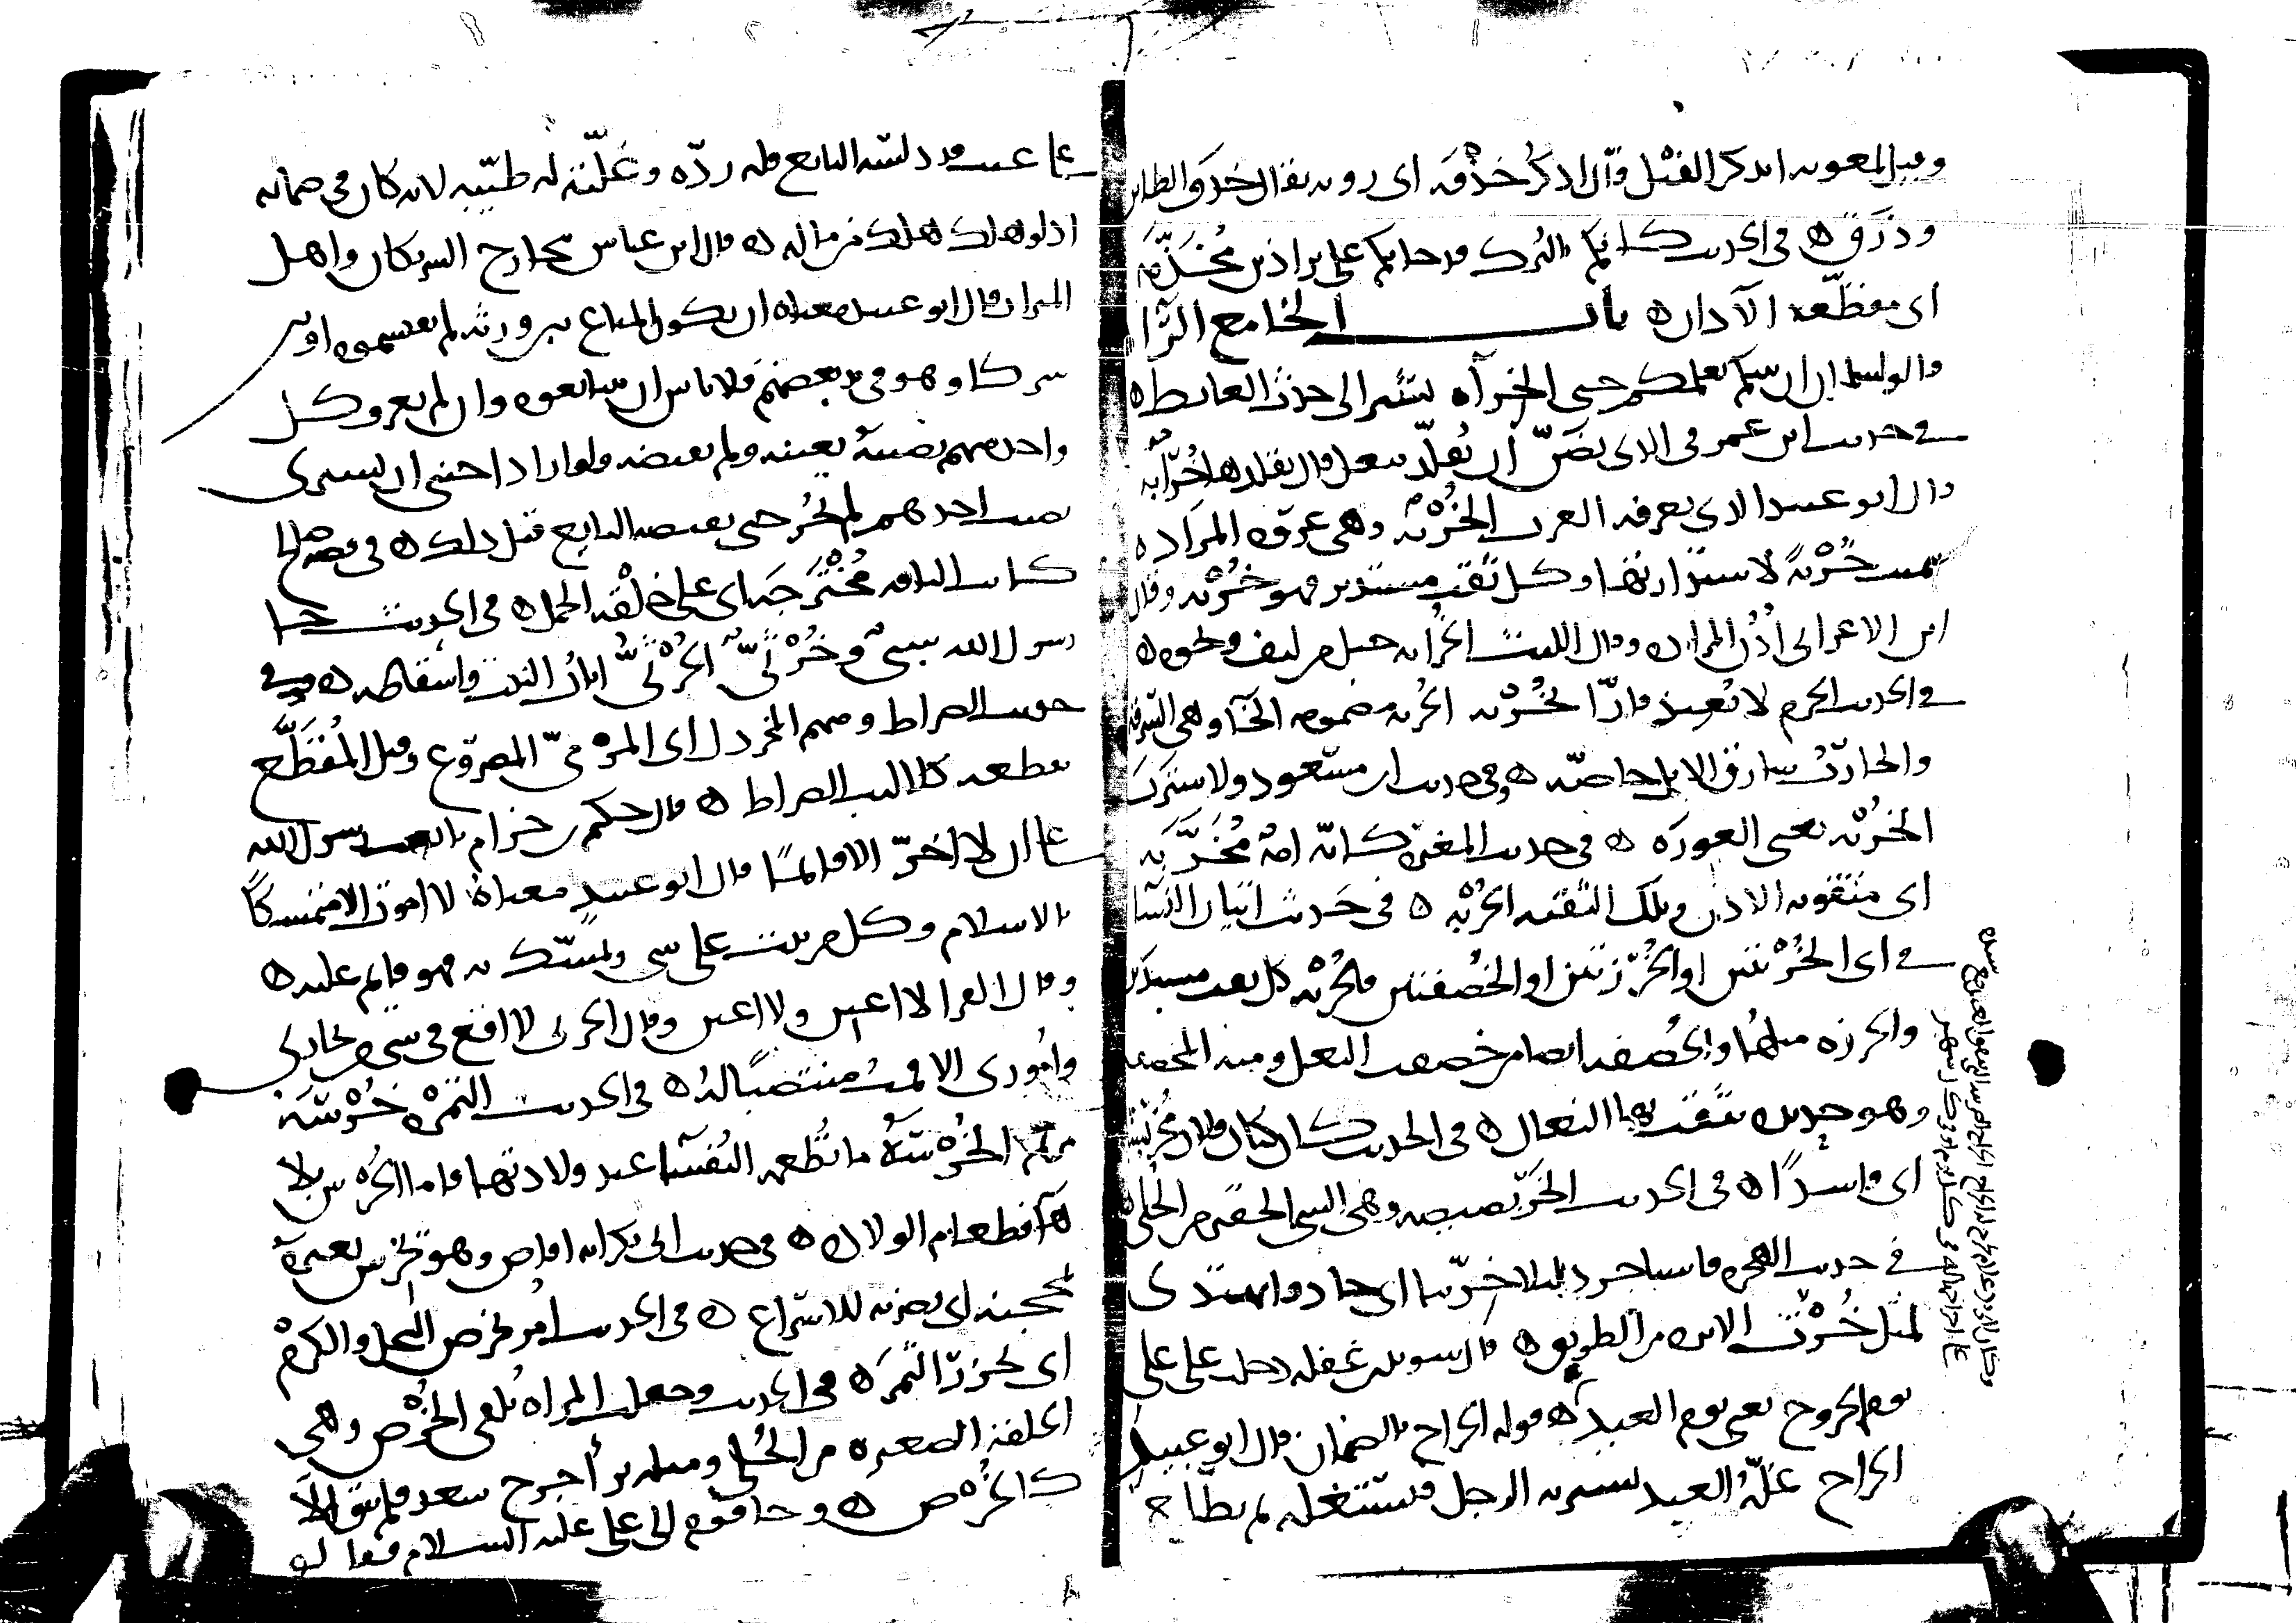 وقيل لمعوية اتذكر الفيل قال اذكر خذقه اى روثه يقال خذق الطاير
وذرق ه فى الحديث كانكم بالترك قد جاتكم على براذين مخذمة
اى مقطعة الآذان ه باب الخا مع الرآ
قالوا لسلمان ان نبيكم يعلمكم حتى الخرآة يشير الى حدث الغايط ه
فى حديث ابن عمر فى الذى يضن ان يقلد بنعل قال يقلدها خرابة
قال ابو عبيد الذى يعرفه العرب الخربة وهى عروة المزادة
سميت خربة لاستدارتها وكل ثقب مستدير فهو خربة وقال
ابن الاعرابى اذن المزادة وقال الليث الخرابه حبل من ليف ونحوه ه
فى الحديث الحرم لا يعيذ فارا بخربة الخربة مضمومة الخآ وهى السرقة
والخارب سارق الابل خاصة ه وفى حديث ابن مسعود ولا سترت
الخربة يعنى العورة ه فى حديث المغيرة كانه امة مخربة
اى مثقوبة الاذن وتلك الثقبة الخربة ه فى حديث اتيان النسآ
فى اى الخربتين او الخرزتين او الخصفتين فالخربة كل ثقب مستدير
والخرزة مثلها والخصفة ايضا من خصفت النعل ومنه المخصف
وهو حديدة يثقب بها النعال ه فى الحديث كان كتاب فلان مخربشا
اى فاسدا ه فى الحديث الخربصيصة وهى الشى الحقير من الحلى
فى حديث الهجرة فاستاجر دليلا خريتا اى حاذقا يهتدى
لمثل خرت الابرة من الطريق ه قال سويد بن غفلة دخلت على على
يوم الخروج يعنى يوم العيد ه قوله الخراج بالضمان قال ابو عبيد
الخراج غلة العبد يشتريه الرجل فيستغله ثم يطلع
على عيب قد دلسه البايع فله رده وغلته له طيبة لانه كان فى ضمانه
اذ لو هلك هلك من ماله ه قال ابن عباس يتخارج الشريكان واهل
الميراث قال ابو عبيد معناه ان يكون المتاع بين ورثة لم يقتسموه او بين
شركا وهو فى يد بعضهم فلا باس ان يتبايعوه وان لم يعرف كل
واحد منهم نصيبه بعينه ولم يقبضه ولو اراد اجنبى ان يشترى
نصيب احدهم لم يجز حتى يقبضه البايع قبل ذلك ه فى قصة صالح
كانت الناقة مخترجة اى على خلقة الجمل ه فى الحديث جا
رسول الله سبى وخرثى الخرثى اثاث البيت واسقاطه ه وفى
حديث الصراط ومنهم المخردل اى المرمى المصروع وقيل المقطع
تقطعه كلاليب الصراط ه قال حكيم بن حزام بايعت رسول الله
على ان لا اخر الا قايما قال ابو عبيد معناه لا اموت الا متمسكا
بالاسلام وكل من ثبت على شى وتمسك به فهو قايم عليه ه
وقال الفرا لا اغبن ولا اغبن وقال الحربى لا اقع فى شى من تجارتى
وامورى الا قمت منتصبا له ه فى الحديث التمر خرسة
مريم الخرسة ما تطعمه النفسآ عند ولادتها فاما الخرس بلا
هآ فطعام الولادة ه فى حديث ابى بكر انه افاض وهو يخرش بعيره
بمحجنه اى يضربه للاسراع ه فى الحديث امر بخرص النخل والكرم
اى يحزر الثمر ه فى الحديث وجعلت المراة تلقى الخرص وهى
الحلقة الصغيرة من الحلى ومثله برأ جرح سعد فلم يبق الا
كالخرص ه وجا قوم الى على عليه السلام فقالو